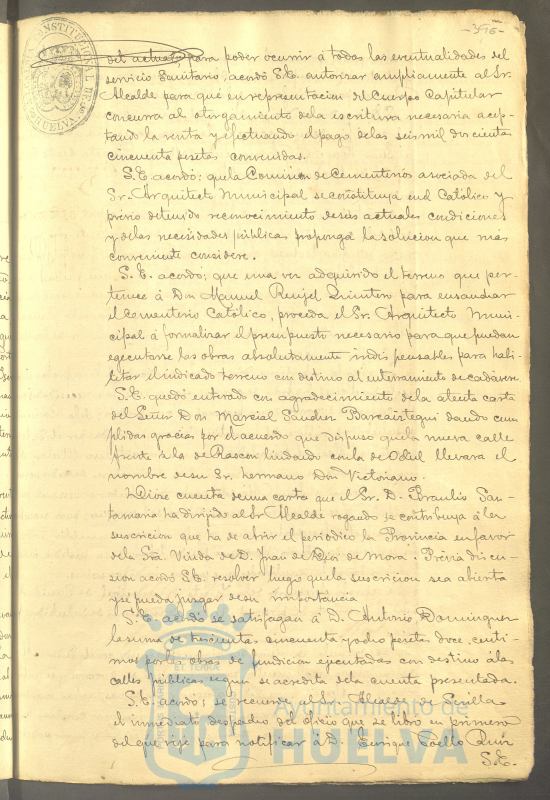 -395-
CONSTITUCIONAL DE HUELVA
del actual, para poder ocurrir á todas las eventualidades del
servicio Sanitario, acordó S.E. autorizar ampliamente al Sr.
Alcalde para que en representacion del Cuerpo Capitular
concurra al otorgamiento dela escritura necesaria acep-
tando la venta y efectuando el pago delas seis mil doscienta
cincuenta pesetas convenidas.
S.E. acordó: quela Comision de Cementerios asociada del
Sr. Arquitecto Municipal se constituya en el Católico y
previo detenido reconocimiento desus actuales condiciones
y delas necesidades públicas proponga la solucion que mas
conveniente considere.
S.E. acordó, que una vez adquirido el terreno que per-
tenece á Don Manuel Rengel Quintero para ensanchar
el Cementerio Católico, proceda el Sr. Arquitecto Muni-
cipal á formalizar el presupuesto necesario para que puedan
egecutarse las obras absolutamente indispensables para habi-
litar el indicado terreno con destino al enterramiento de cadáveres
S.E. quedó enterado con agradecimiento dela atenta carta
del Señor Don Marcial Sanchez Barcaiztegui dando cum
plidas gracias por el acuerdo que dispuso quela nueva calle
frente á la de Rascon lindando conla de Odiel llevara el
nombre desu Sr. hermano Don Victoriano.
Diose cuenta deuna carta que el Sr. D. Braulio San-
tamaria ha dirijido al Sr. Alcalde rogando se contribuya á la
suscricion que ha de abrir el periodico la Provincia en favor
dela Sra. Viuda de D. Juan de Dios de Mora. Prévia discu-
sion acordó S.E. resolver luego quela suscricion sea abierta
y se pueda juzgar desu importancia
S.E. acordó se satisfagan á D. Antonio Dominguez
la suma de trescientas cincuenta y ocho pesetas doce centi-
mos por las obras de fundicion ejecutadas con destino á las
calles públicas segun se acredita dela cuenta presentada.
S.E. acordó; se recuerde al Sr. Alcalde de Sevilla
el inmediato despacho del oficio que se libró en primero
del que rige para notificar á D. Enrique Coello Ruiz
S.E.
Ayuntamiento de
HUELVA